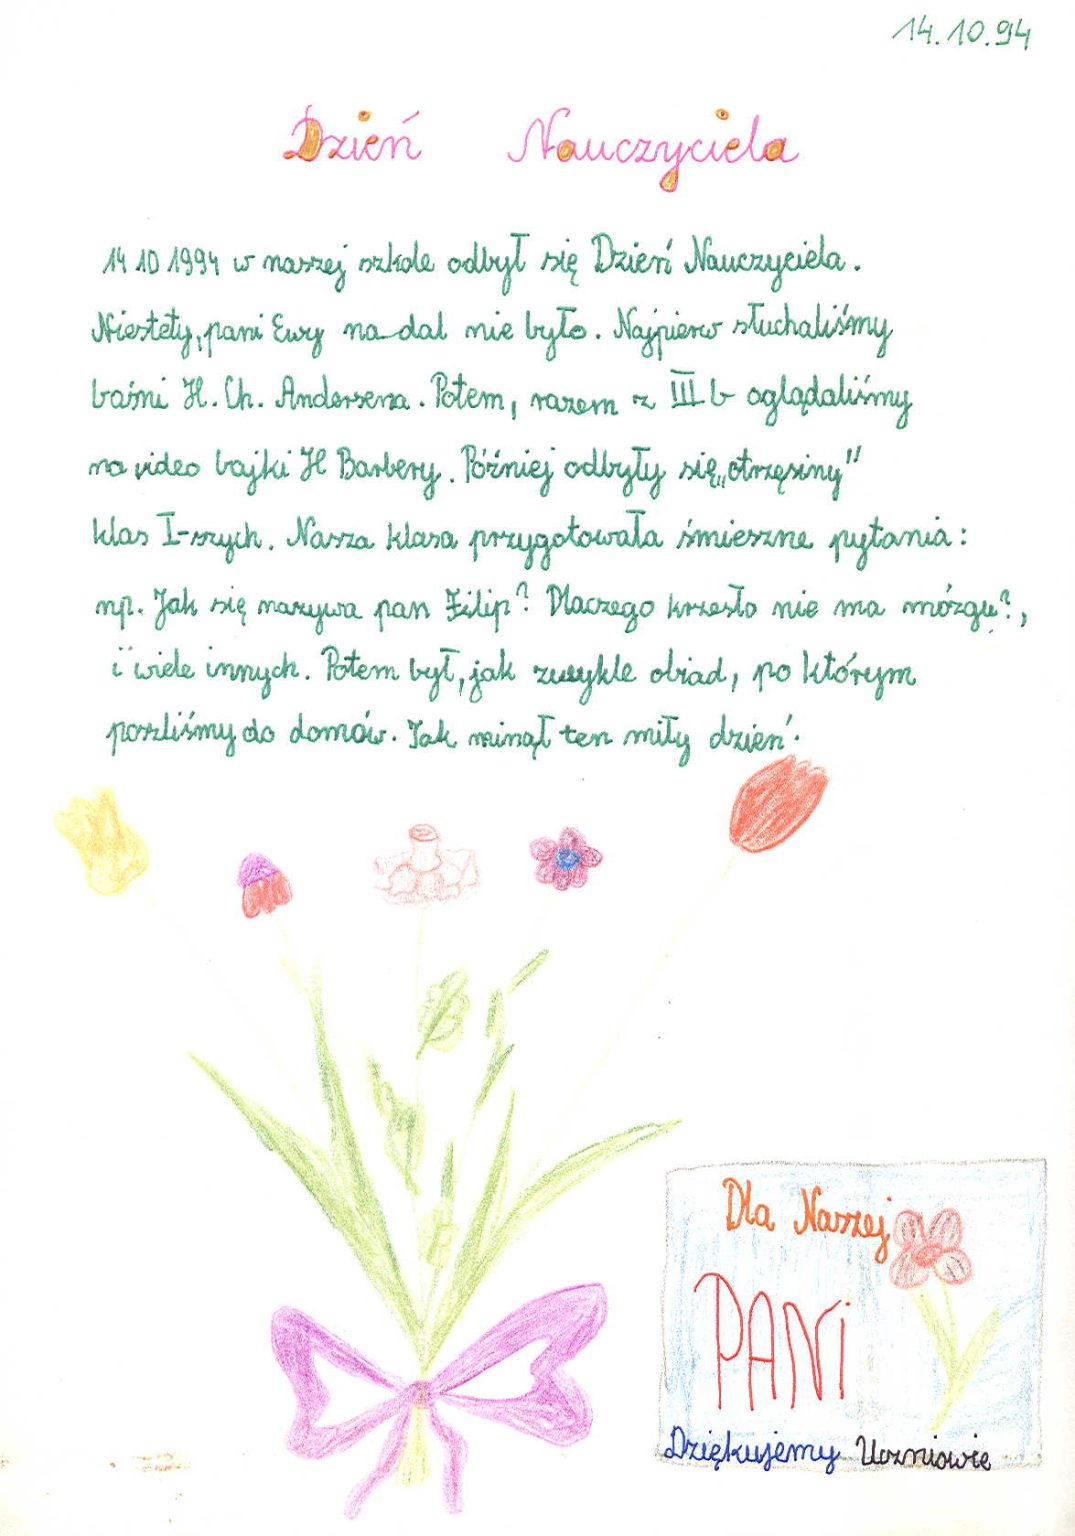 14.10.94
Dzień Nauczyciela
14 10 1994 w naszej szkole odbył się Dzień Nauczyciela.
Niestety, pani Ewy na dal nie było. Najpierw słuchaliśmy
baśni H. Ch. Andersena. Potem, razem z III b oglądaliśmy
na video bajki H Barbery. Później odbyły się „otrzęsiny"
klas I-szych. Nasza klasa przygotowała śmieszne pytania:
np. Jak się nazywa pan Filip? Dlaczego krzesło nie ma mózgu?,
i wiele innych. Potem był, jak zwykle obiad, po którym
poszliśmy do domów. Tak minął ten miły dzień.
Dla Naszej
PANi
Dziękujemy Uczniowie